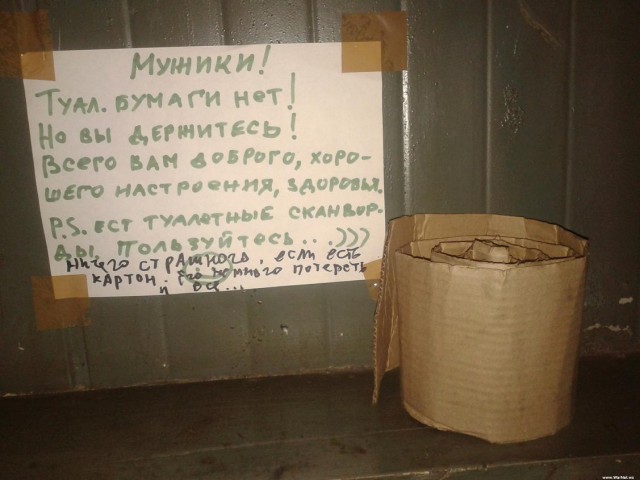 Мужики!
Туал. бумаги нет!
Но вы держитесь!
Всего вам доброго, хоро-
шего настроения, здоровья.
P.S. ест туалетные сканвор-
ды, пользуйтесь...)))
Ничего страшного, если есть
картон. Его немного потереть
и все...
www.WarNet.ws